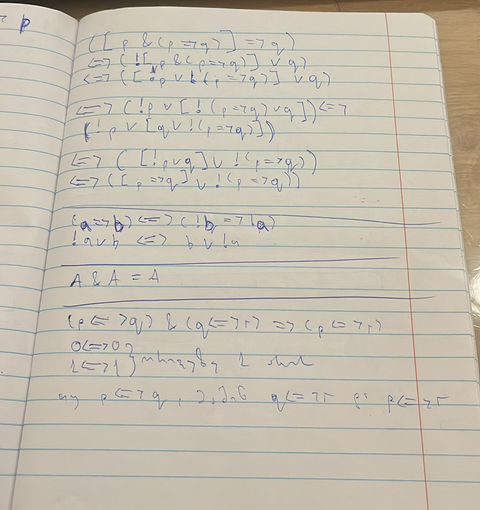 p
([p & (p => q)] => q)
<=> (![p & (p => q)] ∨ q)
<=> ([!p ∨ !(p => q)] ∨ q)
<=> (!p ∨ [!(p => q) ∨ q]) <=>
(!p ∨ [q ∨ !(p => q)])
<=> ([!p ∨ q] ∨ !(p => q))
<=> ([p => q] ∨ !(p => q))
(a => b) <=> (!b => !a)
!a ∨ b <=> b ∨ !a
A & A = A
(p <=> q) & (q <=> r) => (p <=> r)
0 <=> 0 }
1 <=> 1 } 1
p <=> q, q <=> r p <=> r